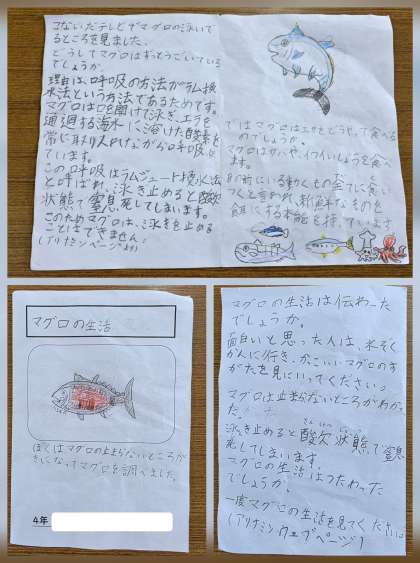 こないだテレビでマグロの泳いで
るところを見ました。
どうしてマグロはずっとうごいている
でしょうか。
理由は、呼吸の方法がラム換
水法という方法であるためです。
マグロは口を開けて泳ぎ、エラを
通過する海水に溶けた酸素を
常に取り入れながら呼吸し
ています。
この呼吸はラムジュート換水法
と呼ばれ、泳ぎ止めると酸欠
状態で窒息死してしまいます。
このためマグロは、泳ぎを止める
ことはできません。
(アリナミンページより)
ではマグロはエサをどうして食べる
のでしょうか。
マグロはカいや、イワシいしょうを食べ
ます。
目の前にいる動くもの全てに食い
つくと言われ、新鮮なものを
餌にする本能を持っています
マグロの生活
ぼくはマグロの止まらないところが
きになってマグロを調べました。
4年
マグロの生活は伝わった
でしょうか。
面白いと思った人は、水ぞく
かんに行き、かっこいいマグロのす
がたを見にいってください。
マグロは止まらないところがわかっ
た。
泳ぎ止めると酸欠状態で窒息
死してしまいます。
マグロの生活はつたわった
でしょうか。
一度マグロの生活を見てください。
(アリナミンウェブページ)